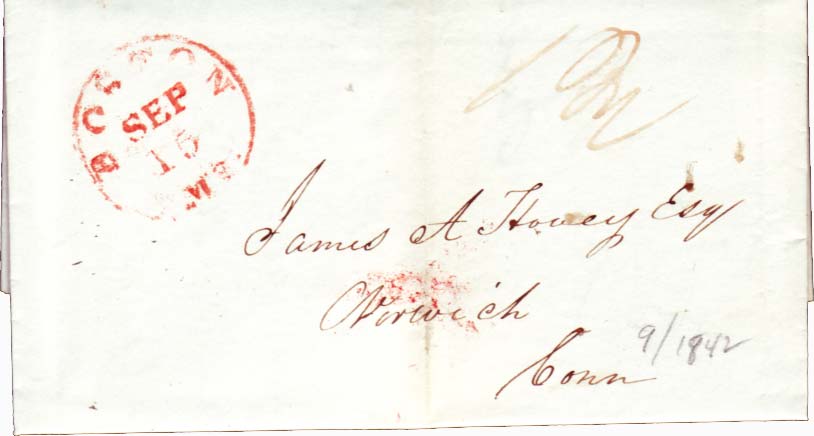 BOSTON
SEP
15
MS.
James A Hovey Esqr
Norwich
Conn
9/1842